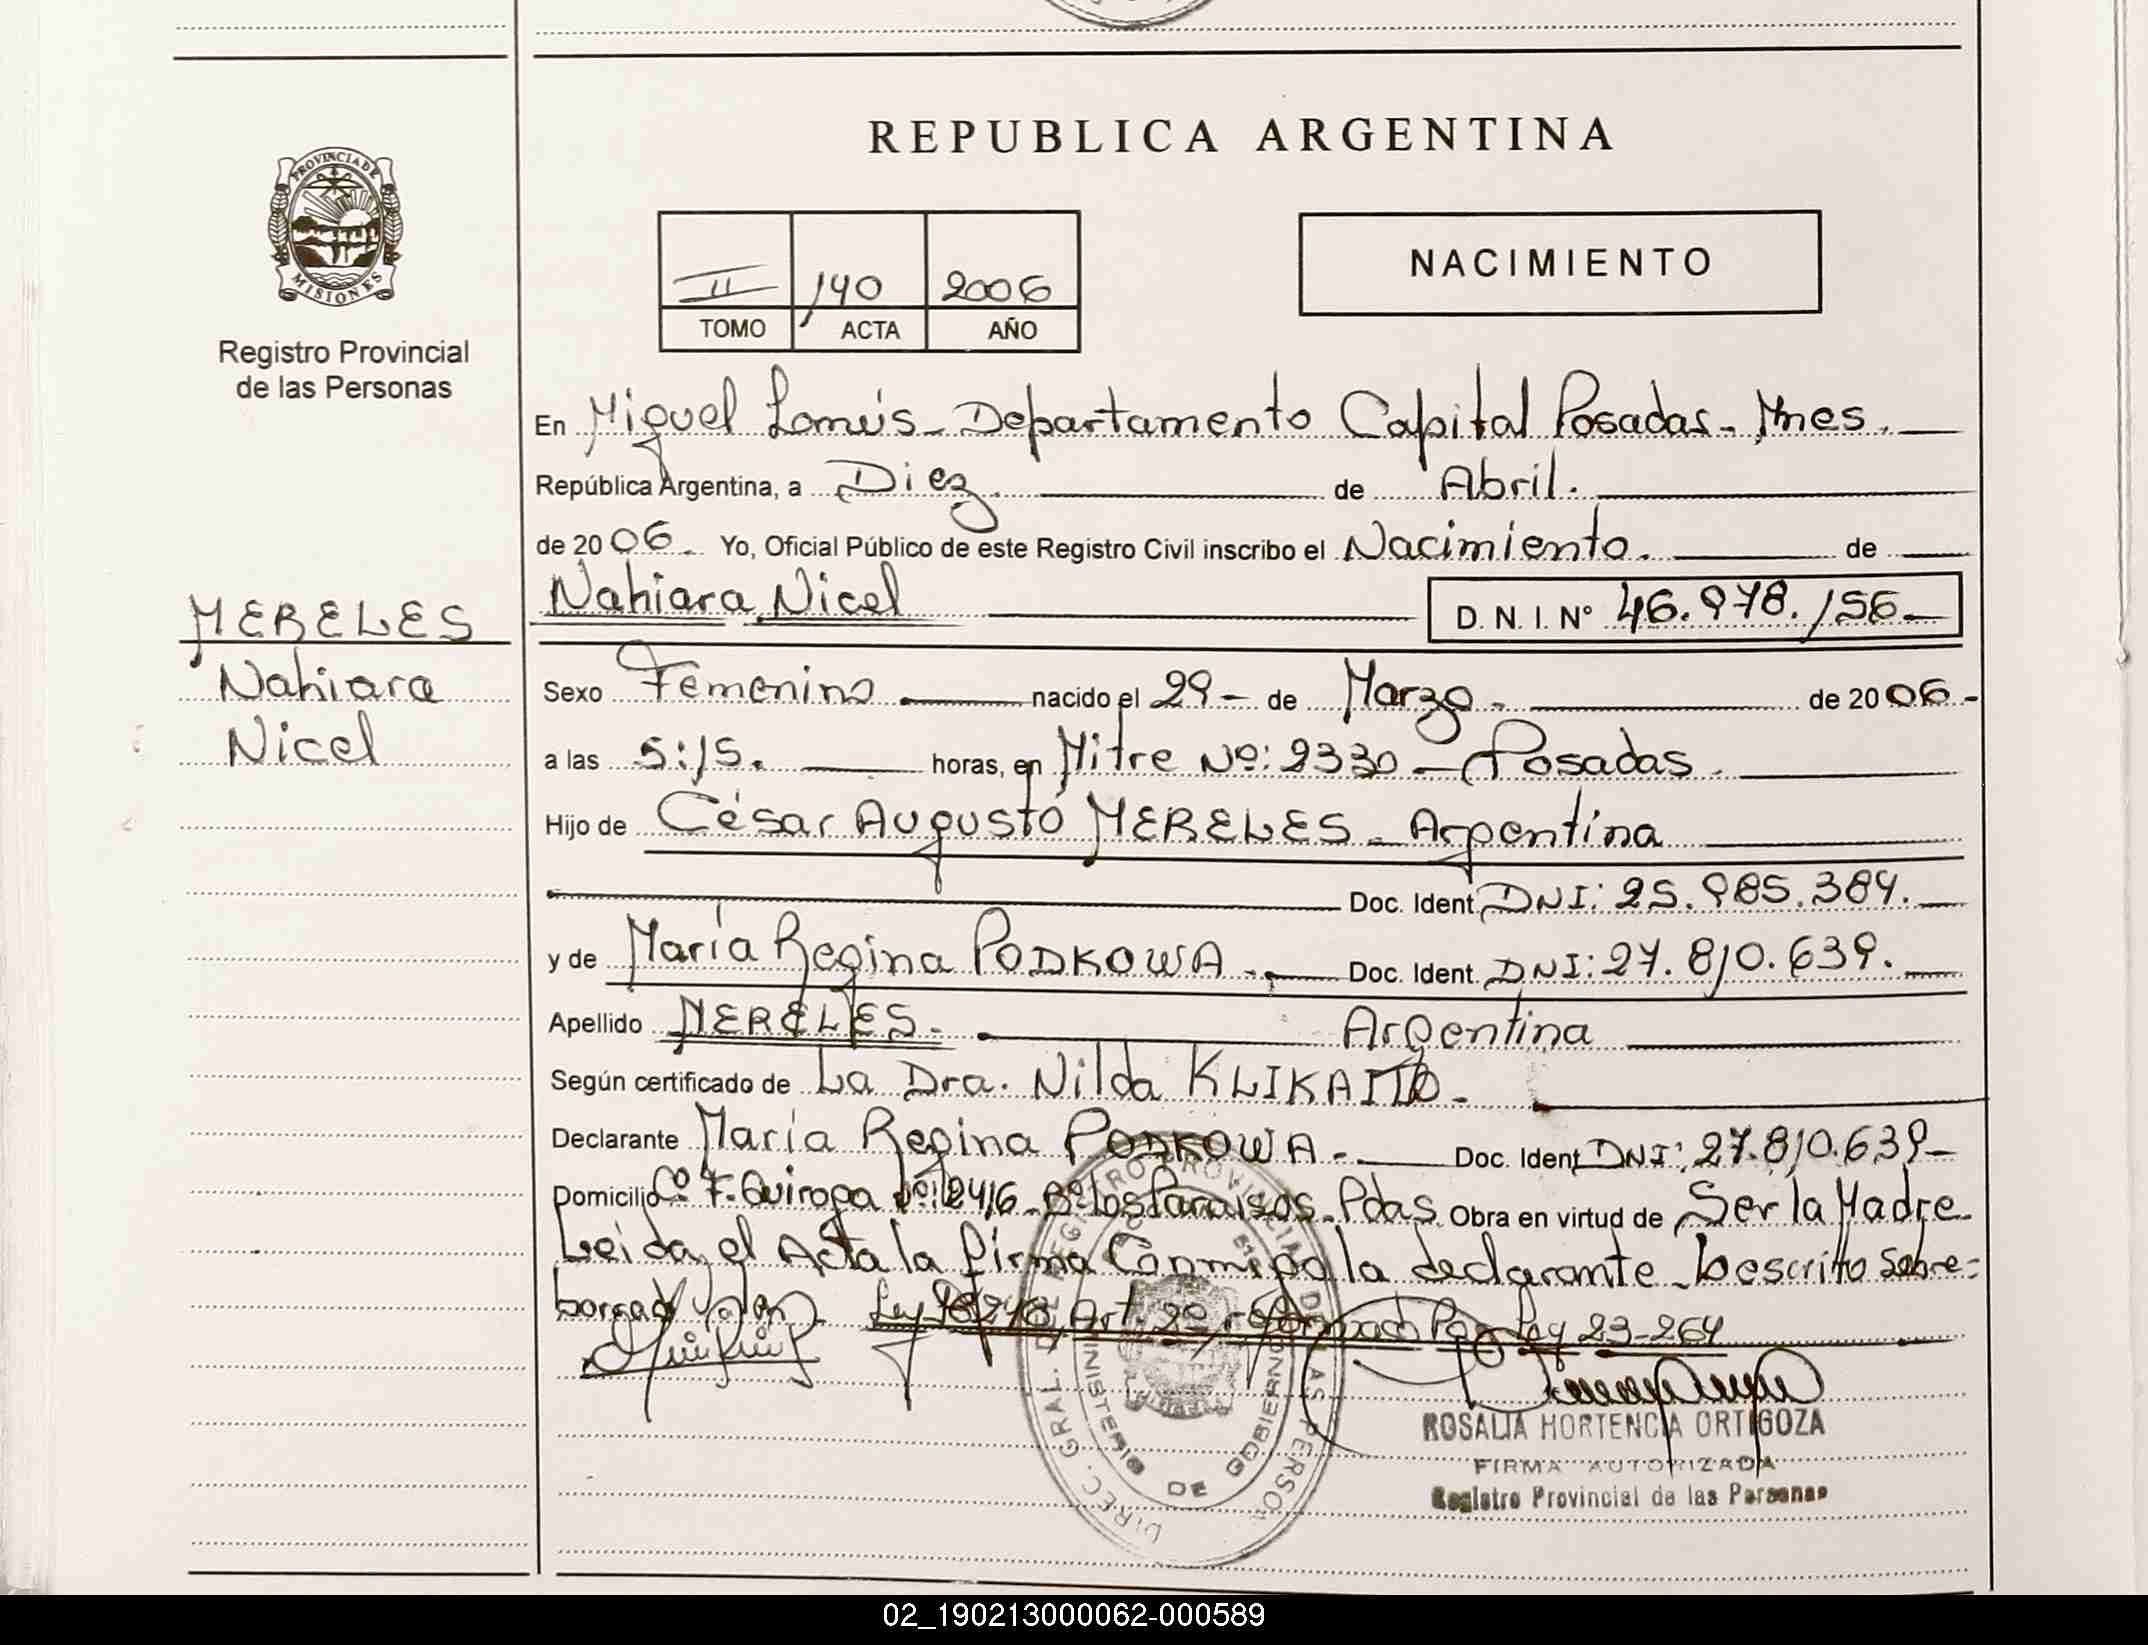 REPUBLICA ARGENTINA
PROVINCIA DE
MISIONES
Registro Provincial
de las Personas
II 140 2006
TOMO ACTA AÑO
NACIMIENTO
En Miguel Lanús - Departamento Capital Posadas - Mnes.
República Argentina, a Diez de Abril.
de 2006. Yo, Oficial Público de este Registro Civil inscribo el Nacimiento. de
Nahiara Nicel D. N. I. Nº 46.978.156-
MERELES
Nahiara
Nicel
Sexo Femenino nacido el 29 - de Marzo - de 2006-
a las 5:15. horas, en Mitre Nº: 2330 - Posadas
Hijo de César Augusto MERELES - Argentina
Doc. Ident. DNI: 25.985.384.
y de María Regina PODKOWA - Doc. Ident. DNI: 27.810.639.
Apellido MERELES. Argentina
Según certificado de La Dra. Nilda -
Declarante María Regina PODKOWA - Doc. Ident. DNI: 27.810.639-
Domicilio Cº F. Quiroga Nº: 2416 - Bº Los Paraisos - Pdas Obra en virtud de Ser la Madre
Leida el Acta la firma Conmigo la declarante - Lo escrito sobre=
borrado Valen. Ley 18248 Art. 2º reformado Por Ley 23-264
DIREC. GRAL. DE REGISTRO PROVINCIAL DE LAS PERSONAS
MINISTERIO DE GOBIERNO
ROSALIA HORTENCIA ORTIGOZA
FIRMA AUTORIZADA
Registro Provincial de las Personas
02_190213000062-000589